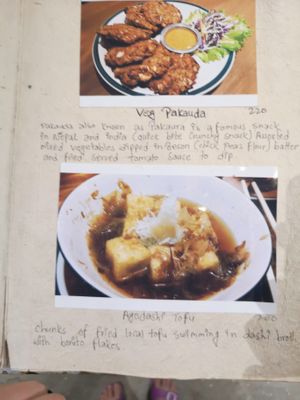 Veg Pakauda 220
Pakauda also known as Pakaura is a famous snack
in Nepal and India (quick bite crunchy snack) Assorted
mixed vegetables dipped in Beson (chick peas flour) batter
and fried served tomato sauce to dip.
Agadashi Tofu 220
Chunks of fried local tofu swimming in dashi broth
with bonito flakes.